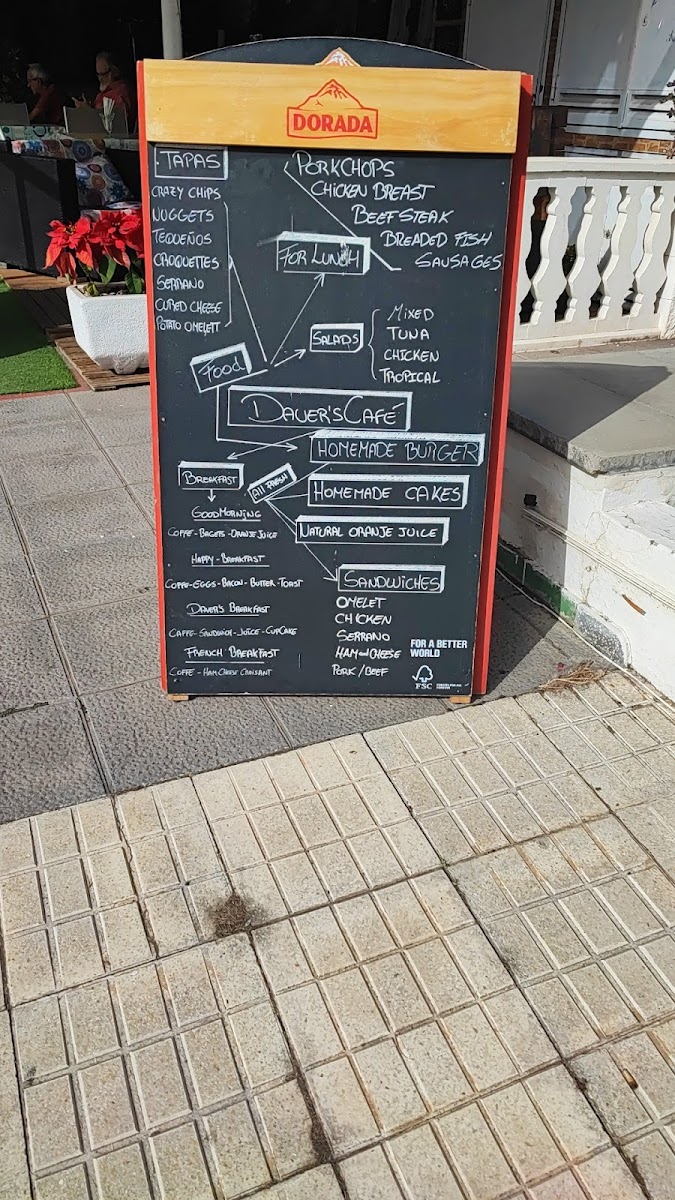 DORADA
TAPAS
CRAZY CHIPS
NUGGETS
TEQUEÑOS
CROQUETTES
SERRANO
CURED CHEESE
POTATO OMELETT
PORKCHOPS
CHICKEN BREAST
BEEF STEAK
BREADED FISH
SAUSAGES
FOR LUNCH
SALADS
MIXED
TUNA
CHICKEN
TROPICAL
FOOD
DAVER'S CAFÉ
HOMEMADE BURGER
BREAKFAST
All FRESH
HOMEMADE CAKES
NATURAL ORANJE JUICE
GOOD MORNING
COFFE-BAGETS-ORANJE JUICE
HAPPY-BREAKFAST
COFFE-EGGS-BACON-BUTTER-TOAST
DAVER'S BREAKFAST
CAFFE-SANDWICH-JUICE-CUPCAKE
FRENCH BREAKFAST
COFFE - HAM CHEESE CROISANT
SANDWICHES
OMELET
CHICKEN
SERRANO
HAM and CHEESE
PORK/BEEF
FOR A BETTER
WORLD
FSC